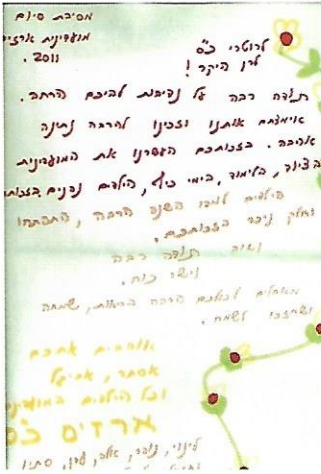 מסיבת סיום
מועדונית ארזים
2011.
לרוטרי כ"ס
לרון היקר!
תודה רבה על נדיבות ליבכם הרחב.
אימצתם אותנו וזכינו להרבה נתינה
אהבה. בזכותכם העשרנו את המועדונית
בציוד, הלימוד, בימי כיף, הילדים נהנים בזכותכם
הילדים למדו השנה הרבה, התפתחו
וחלק ניכר בזכותכם.
ושוב תודה רבה
וישר כוח.
מאחלים לכולכם הרבה בריאות, שמחה
ושתזכו לשמח.
אוהבים אתכם
אסתר, אביטל
וכל הילדים במועדונית
ארזים כ"ס